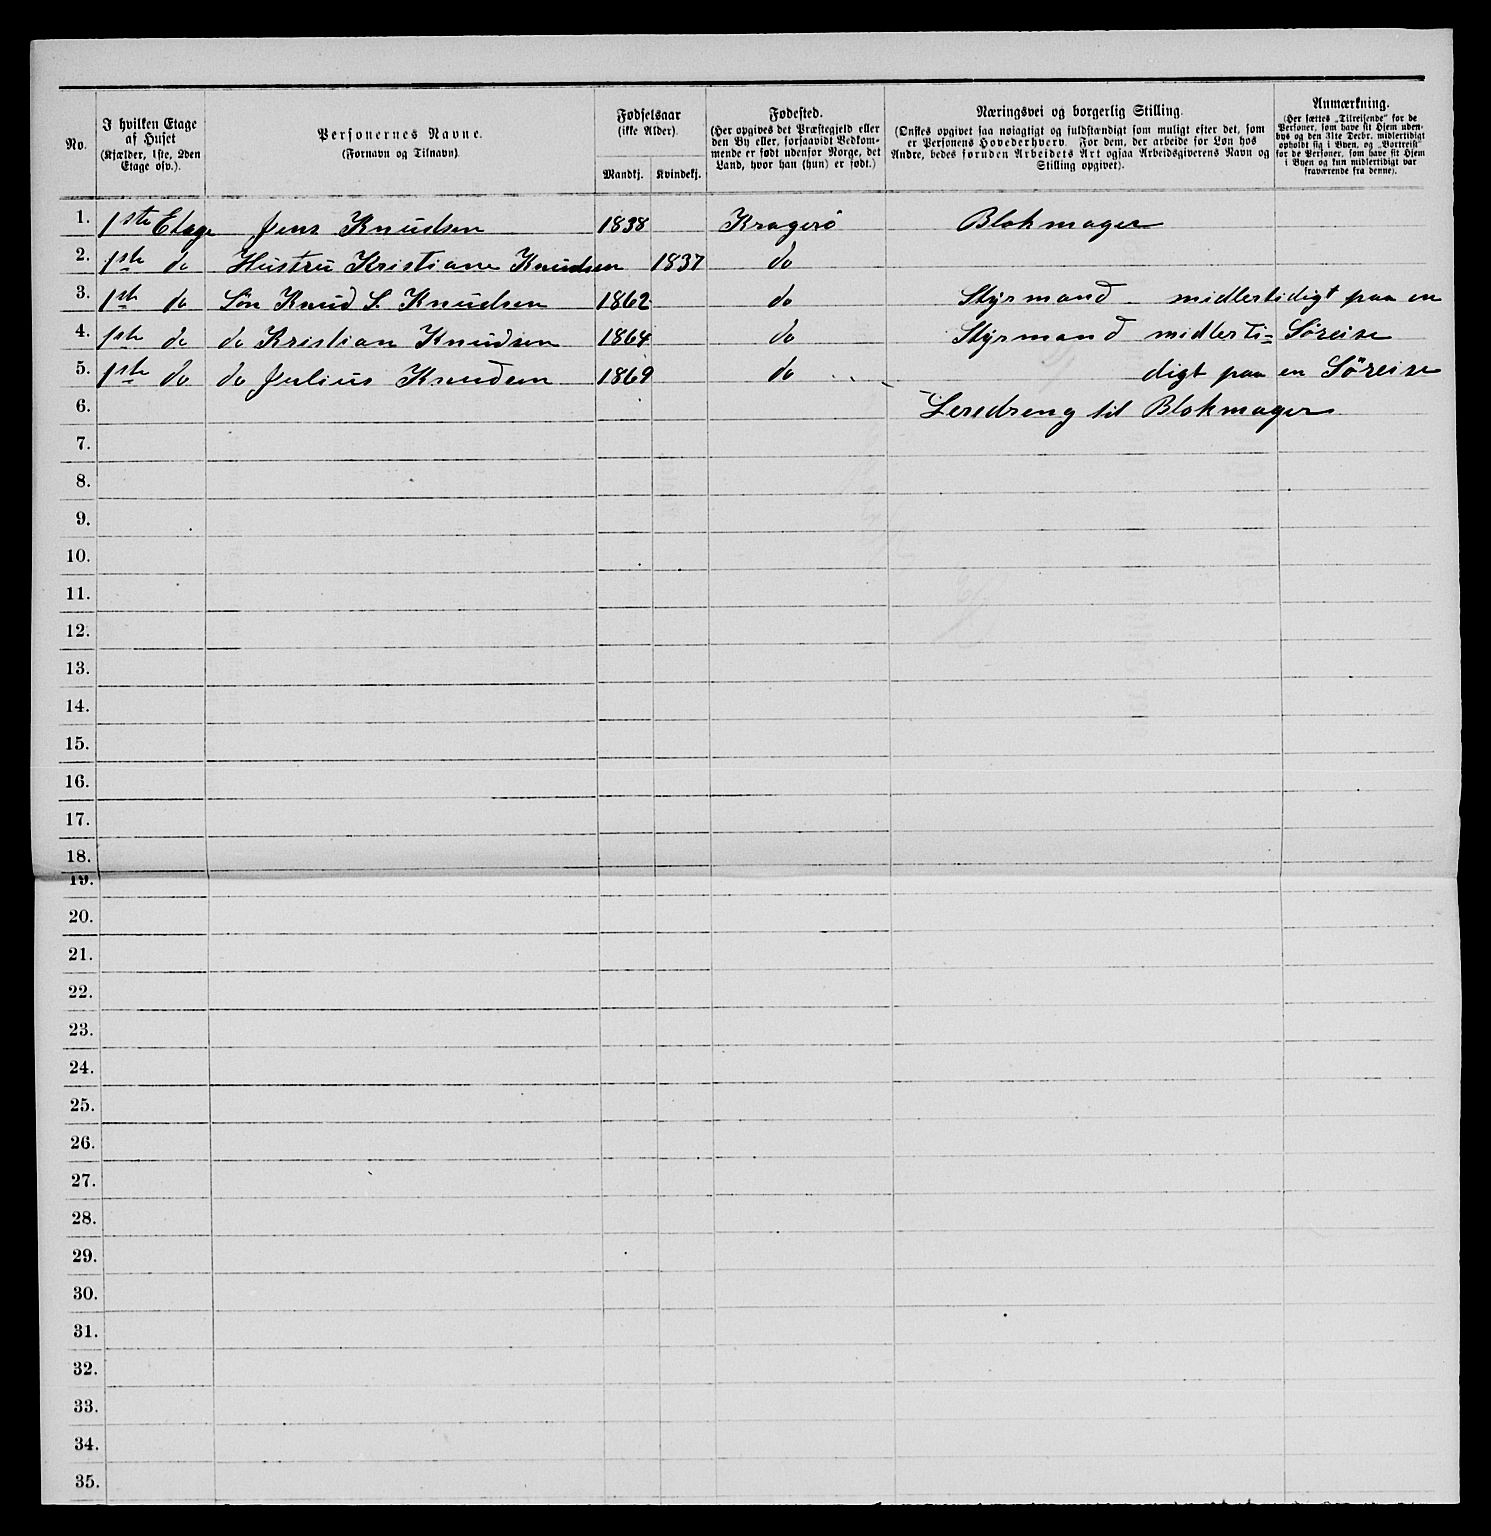 No.
I hvilken Etage af Huset (Kjælder, 1ste, 2den Etage osv.).
Personernes Navne. (Fornavn og Tilnavn).
Fødselsaar (ikke Alder)
Mandkj. Kvindekj.
Fødested. (Her opgives det Præstegjeld eller den By eller, forsaavidt Vedkommende er født udenfor Norge, det Land, hvor han (hun) er født.)
Næringsvei og borgerlig Stilling. (Ønskes opgivet saa nøiagtigt og fuldstændigt som muligt efter det, som er Personens Hovederhverv. For dem, der arbeide for Løn hos Andre, bedes foruden Arbeidets Art ogsaa Arbeidsgiverens Navn og Stilling opgivet).
Anmærkning. (Her sættes „Tilreisende“ for de Personer, som have sit Hjem udenbys og den 31te Decbr. midlertidigt opholdt sig i Byen, og „Bortreist“ for de Personer, som have sit Hjem i Byen og kun midlertidigt var fraværende fra denne).
1. 1ste Etage Jens Knudsen 1838 Kragerö Blokmager
2. 1ste do Hustru Kristiane Knudsen 1837 do
3. 1ste do Sön Knud S. Knudsen 1862 do Styrmand midlertidigt paa en
4. 1ste do do Kristian Knudsen 1864 do Styrmand midlerti= Söreise
5. 1ste do do Julius Knudsen 1869 do digt paa en Söreise
6. Leredreng til Blokmager
7.
8.
9.
10.
11.
12.
13.
14.
15.
16.
17.
18.
19.
20.
21.
22.
23.
24.
25.
26.
27.
28.
29.
30.
31.
32.
33.
34.
35.